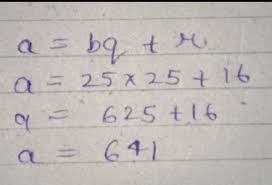 a = bq + r
a = 25 × 25 + 16
a = 625 + 16
a = 641